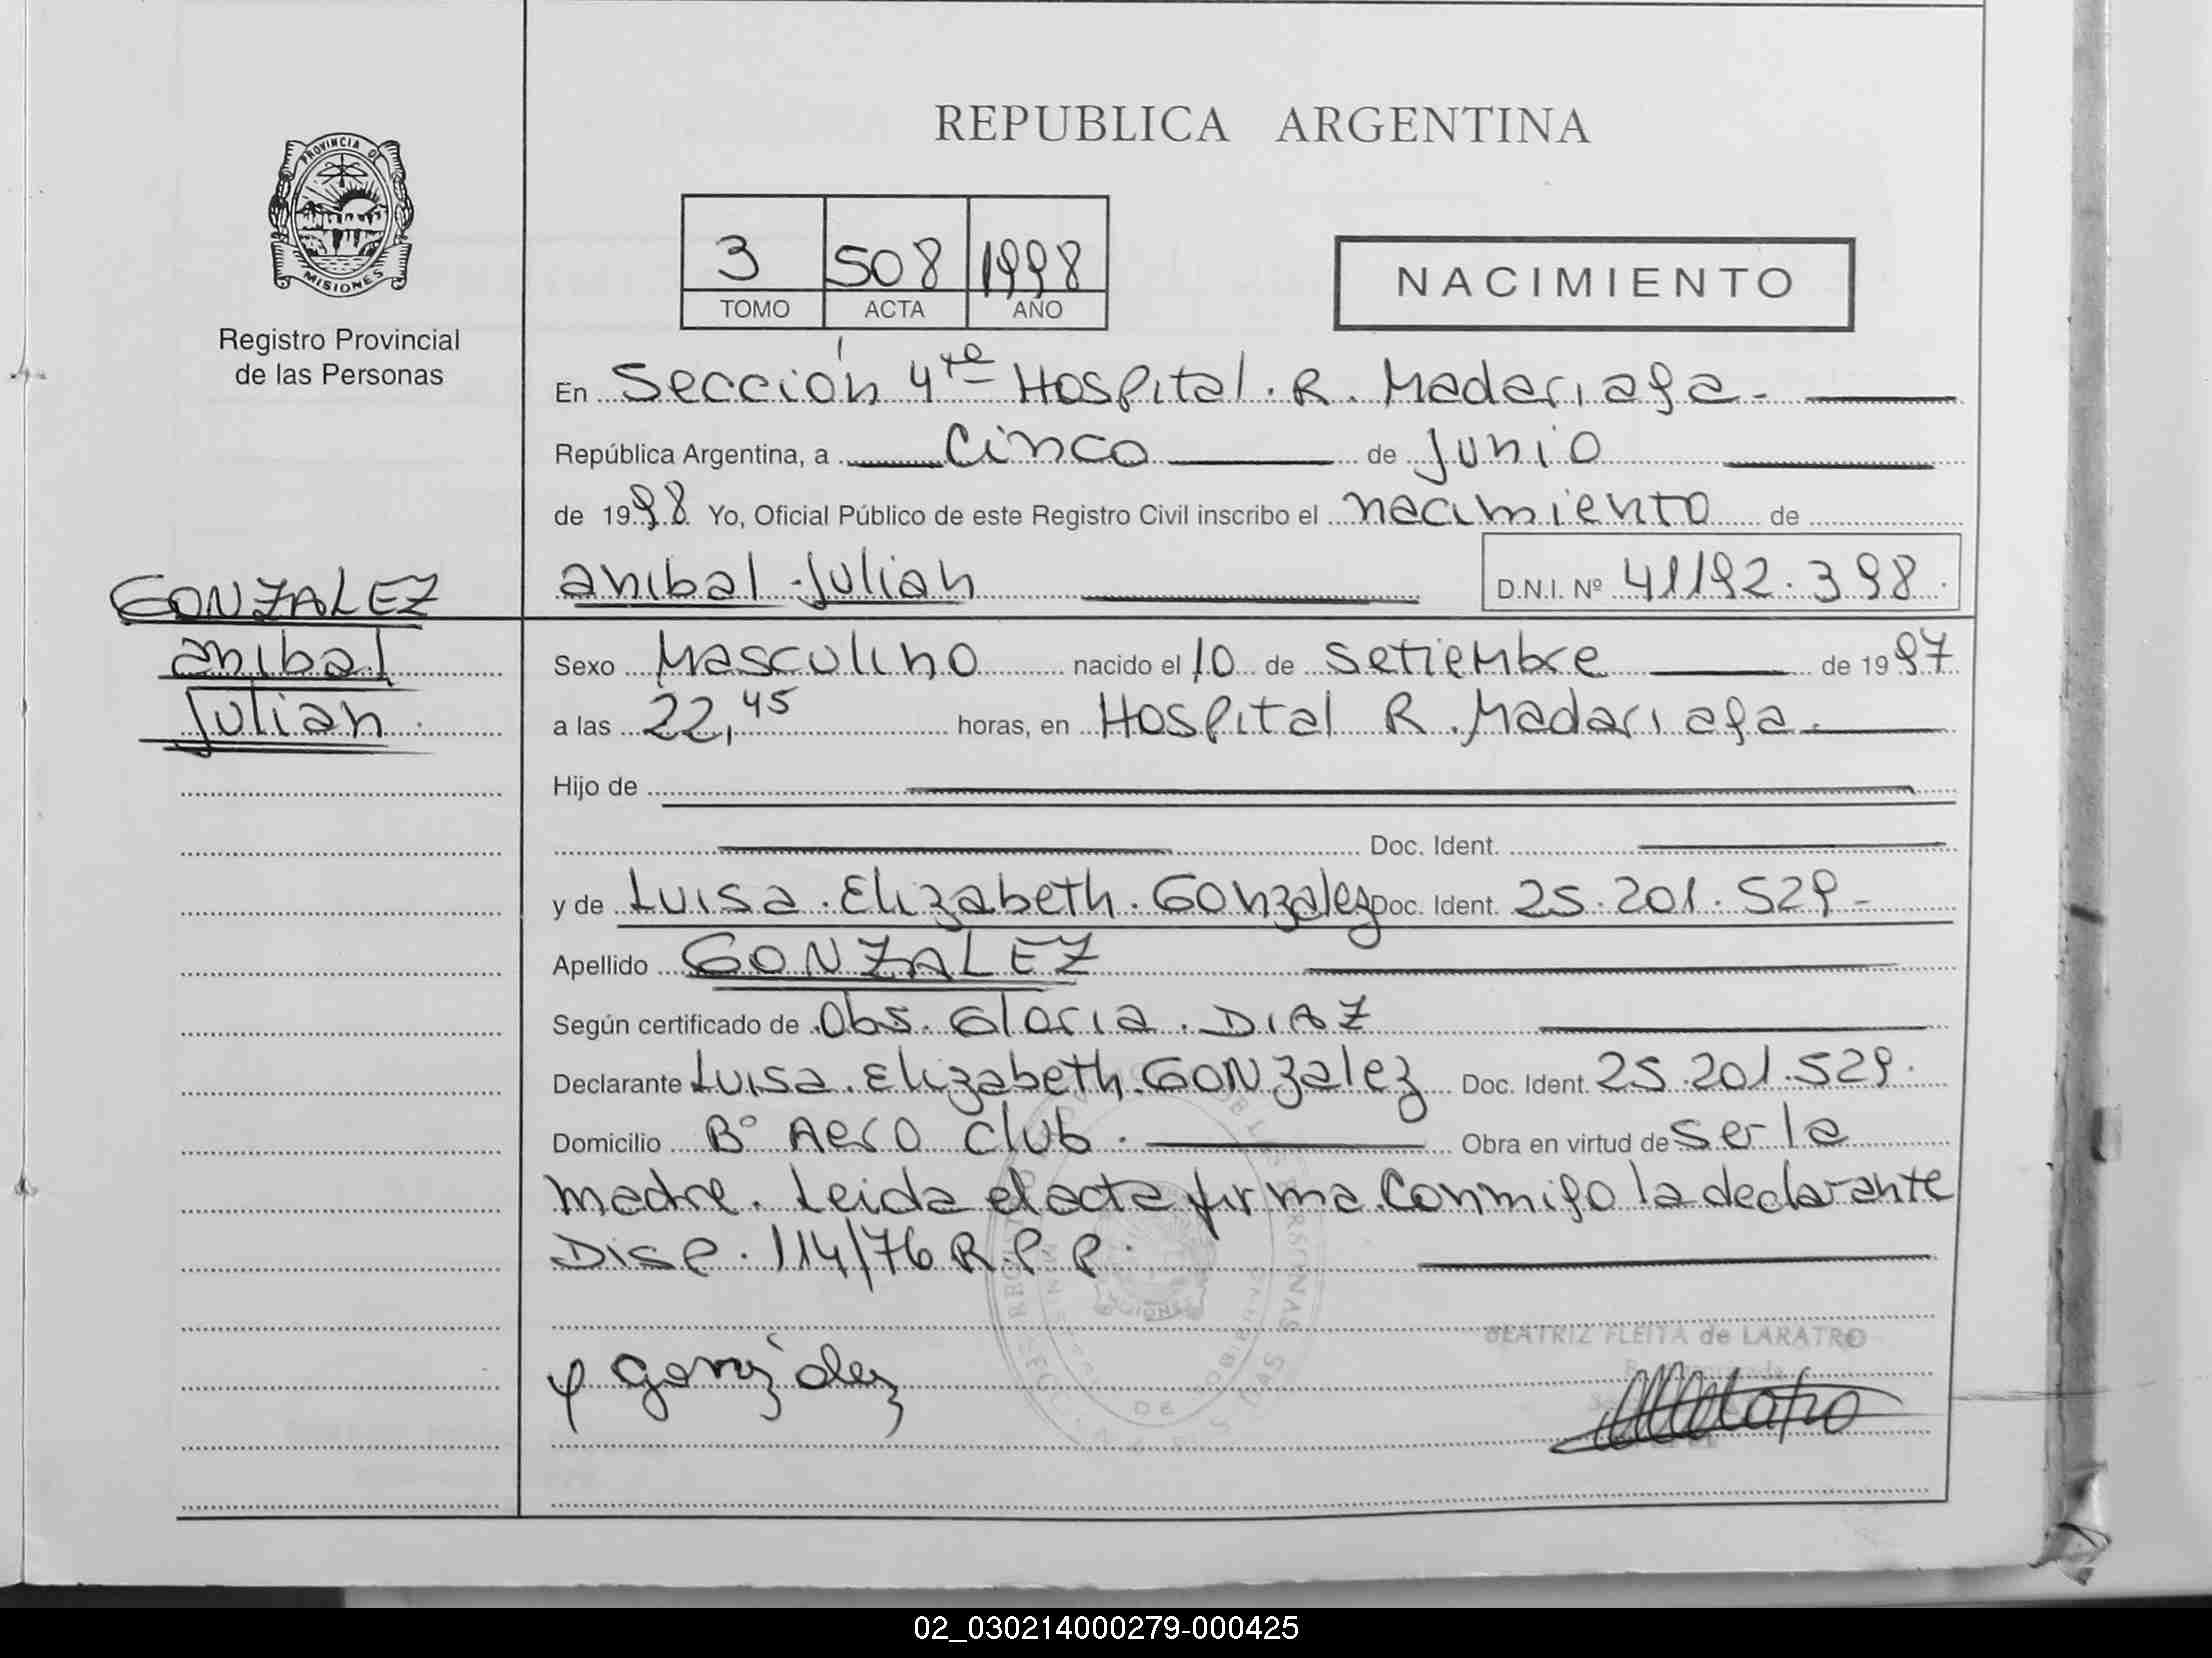 REPUBLICA ARGENTINA
PROVINCIA DE
MISIONES
Registro Provincial
de las Personas
3 508 1998
TOMO ACTA AÑO
NACIMIENTO
En Sección 4ta Hospital . R . Madariaga -
República Argentina, a Cinco de Junio
de 1998 Yo, Oficial Público de este Registro Civil inscribo el nacimiento de
anibal Julian D.N.I. Nº 41192.398.
GONZALEZ
anibal
Julian .
Sexo Masculino nacido el 10 de Setiembre de 1997
a las 22,45 horas, en Hospital R . Madariaga -
Hijo de
Doc. Ident.
y de Luisa . Elizabeth . Gonzalez Doc. Ident. 25.201.529 -
Apellido GONZALEZ
Según certificado de Obs. Gloria . DIAZ
Declarante Luisa . Elizabeth . GONzalez Doc. Ident. 25.201.529.
Domicilio Bº Aero Club . Obra en virtud de Ser la
madre . Leida el acta firma Conmigo la declarante
Disp . 114/76 R.P.P.
BEATRIZ FLEITA de LARATRO
Gonzalez
02_030214000279-000425